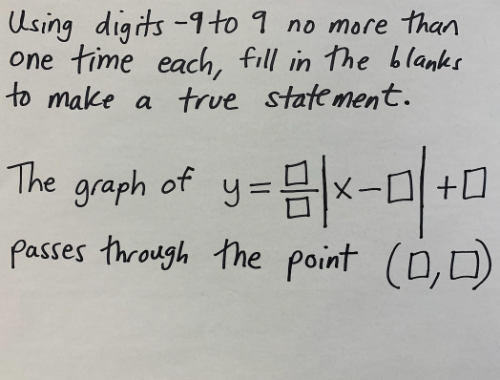 Using digits -9 to 9 no more than
one time each, fill in the blanks
to make a true statement.
The graph of y = □/□ |x - □| + □
passes through the point (□, □)